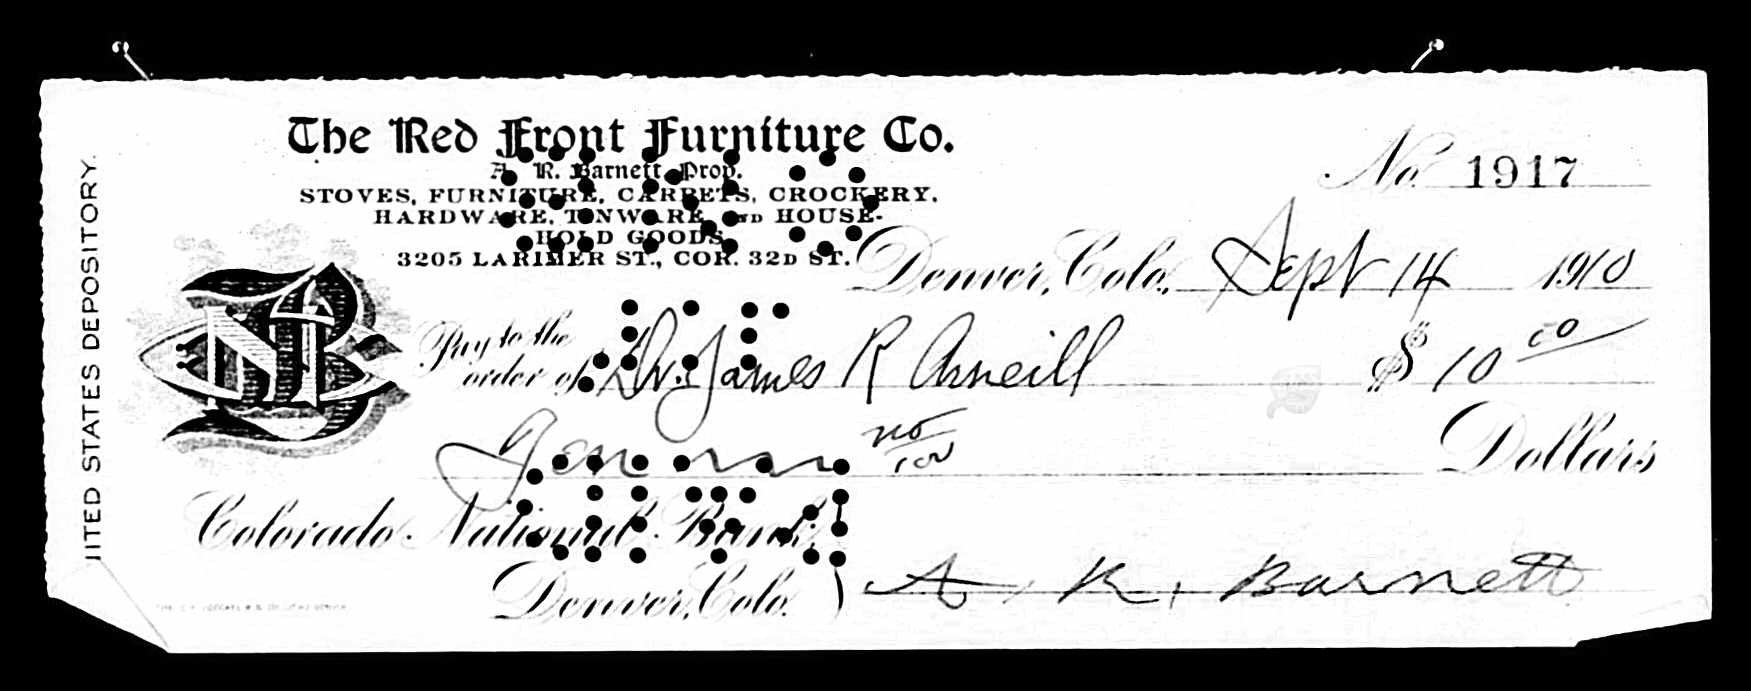 The Red Front Furniture Co.
A. R. Barnett, Prop.
STOVES, FURNITURE, CARPETS, CROCKERY,
HARDWARE, TINWARE, AND HOUSE-
HOLD GOODS,
3205 LARIMER ST., COR. 32D ST.
No. 1917
Denver, Colo., Sept 14 1910
Pay to the
order of Dr. James R Arneill $ 10 00
Ten no/100 Dollars
Colorado National Bank,
Denver, Colo.
A. R. Barnett
UNITED STATES DEPOSITORY.